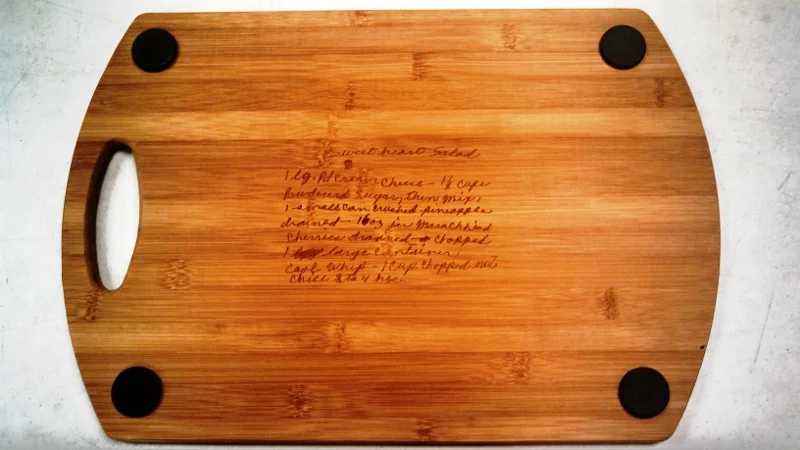 Sweetheart Salad
1 lg. Pd Cream Cheese - 1/2 cups
Powdered Sugar, then mix,
1 small can crushed pineapple
drained - 16 oz jar Maraschino
Cherries drained - chopped
1 large container
Cool Whip - 1 cup chopped nut
Chill 2 to 4 hrs.